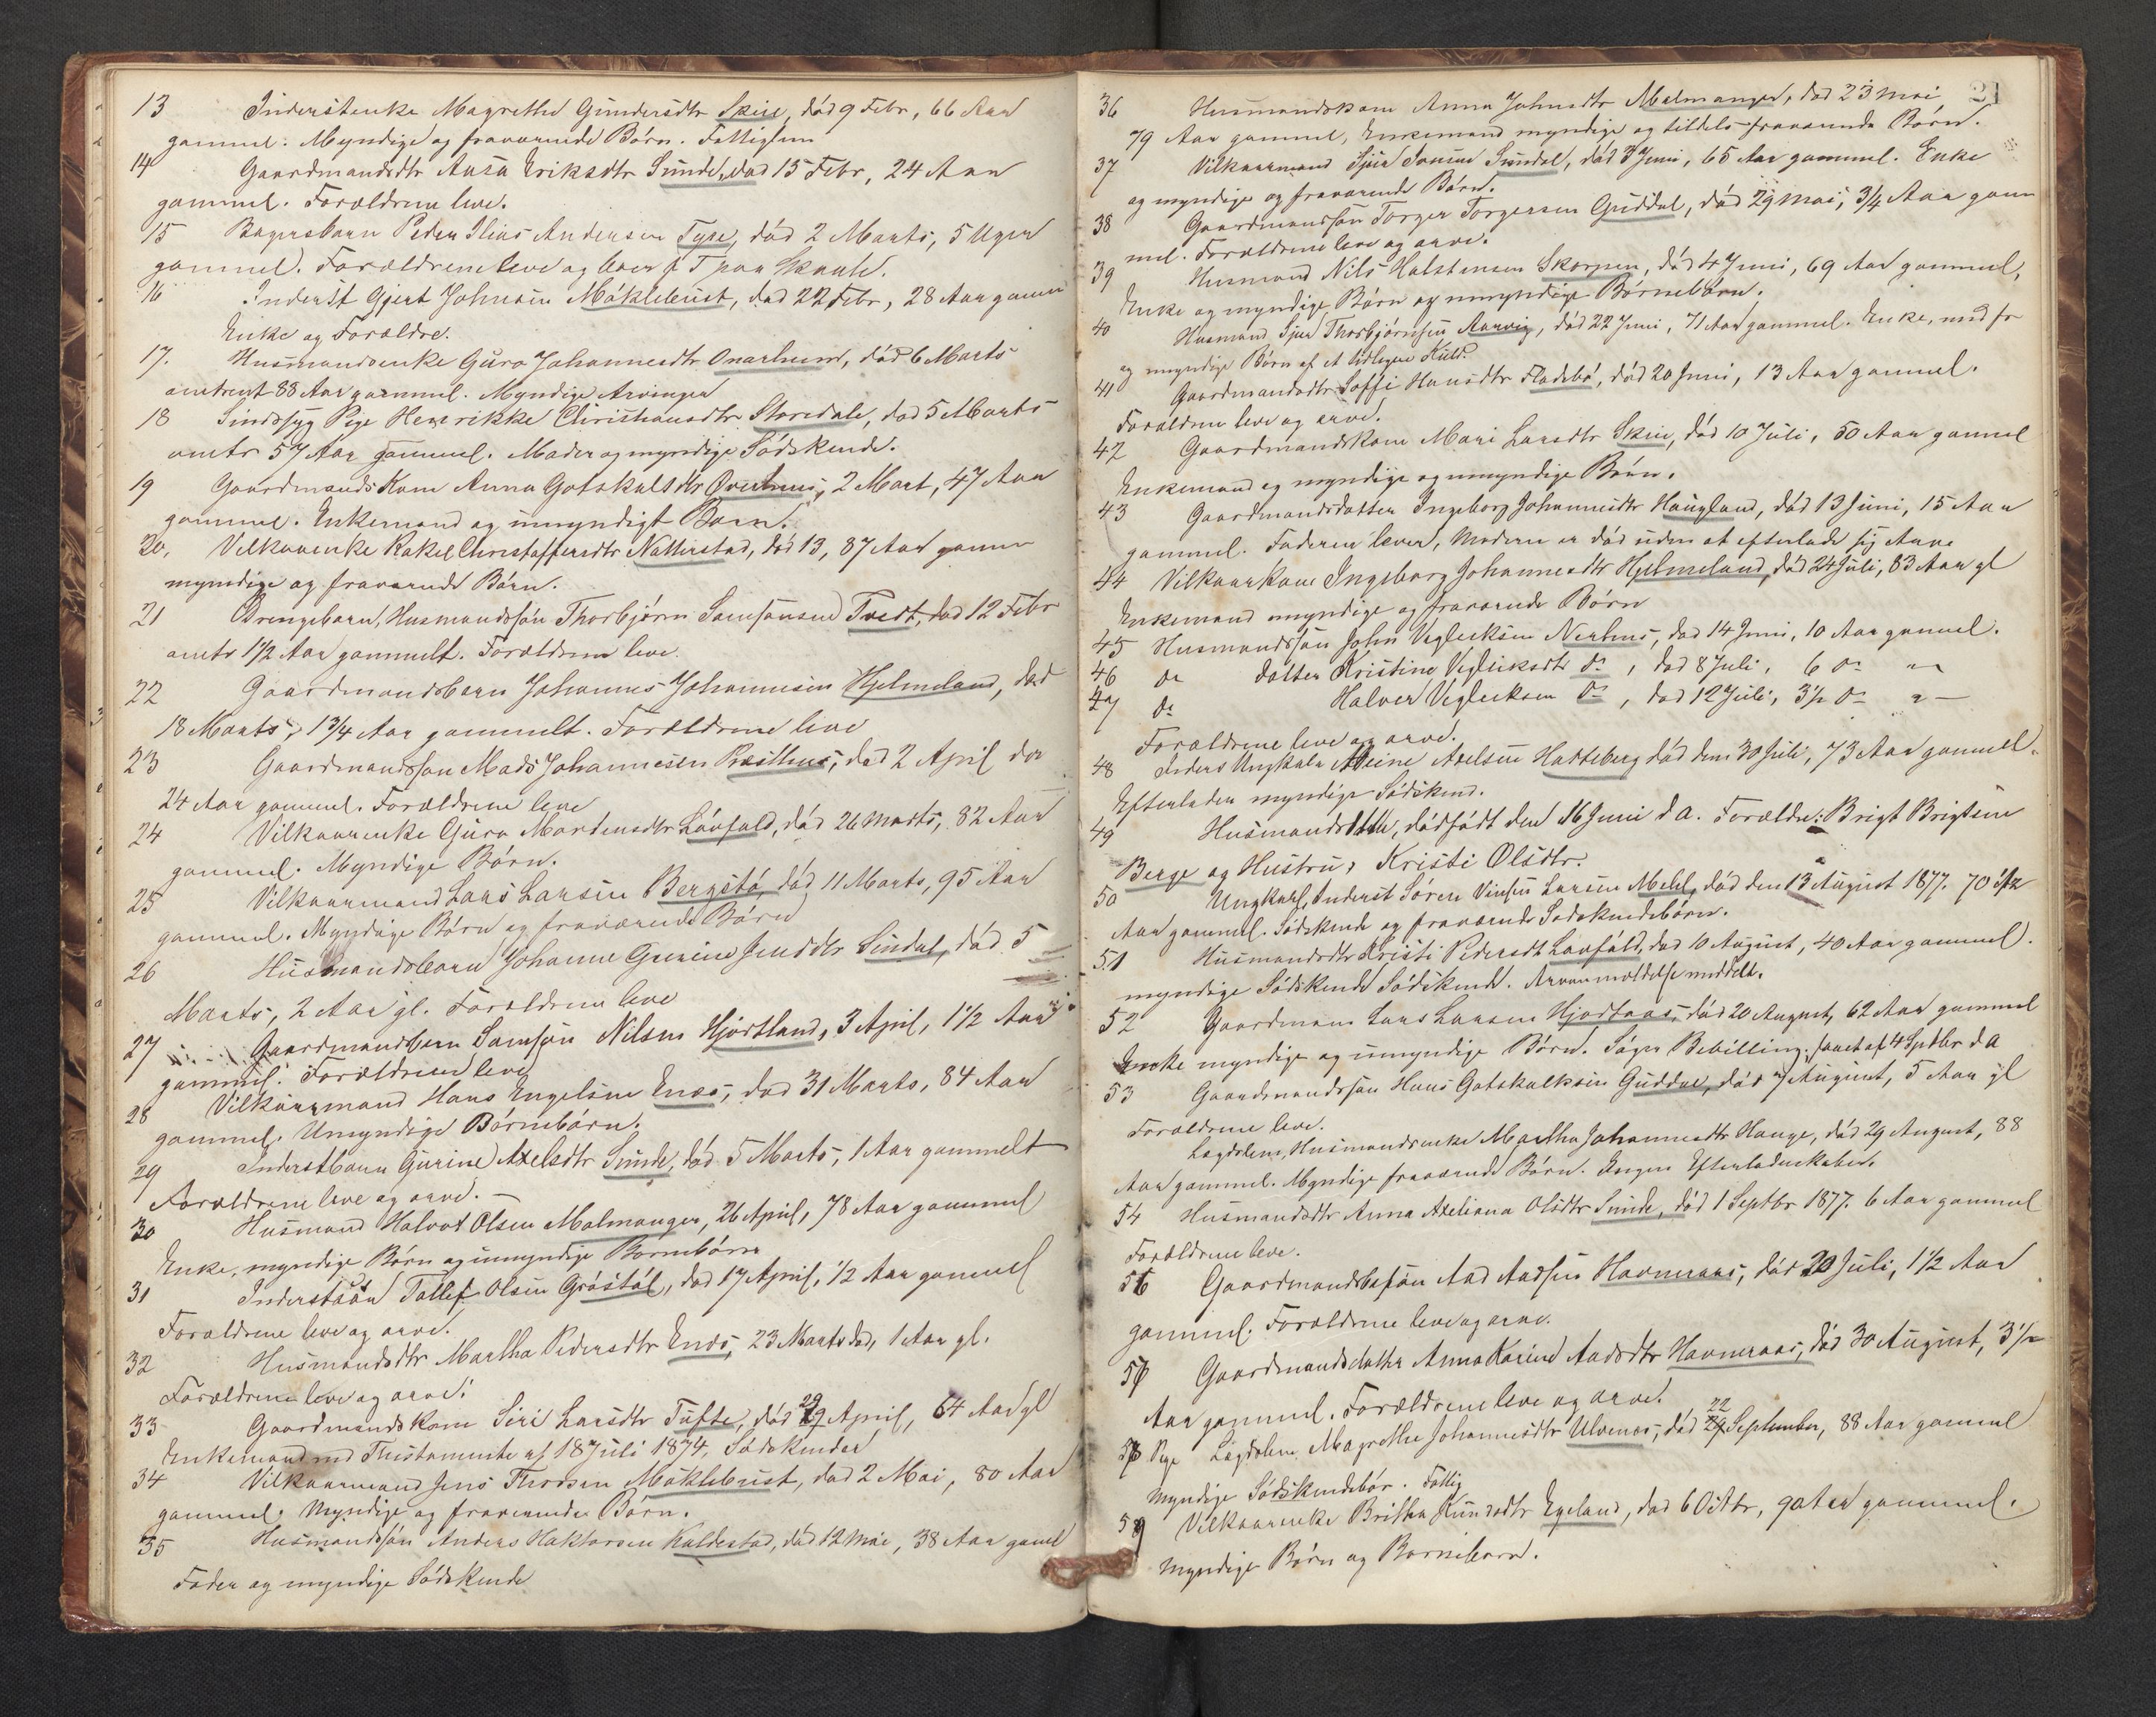 13 Inderstenke Magrethe Gundersdtr Skeie, død 9 Febr, 66 Aar
gammel. Myndige og fraværende Børn. Fattiglem
14 Gaardmandsdtr Ansa Eriksdtr Sunde, død 15 Febr, 24 Aar
gammel. Forældrene leve.
15 Bagersbarn Peder Elias Andersen Tyse, død 2 Marts, 5 Uger
gammel. Forældrene leve og boer p T paa Skaale.
16 Inderst Gjert Johnsen Møklebust, død 22 Febr, 28 Aar gamm
Enke og Forældre.
17. Husmandsenke Guro Johannesdtr Onarheim, død 6 Marts
omtrent 88 Aar gammel. Myndige Arvinger
18 Sindssyg Pige Henrikke Christiansdtr Storedale, død 5 Marts
omtr 57 Aar gammel. Moder og myndige Sødskende.
19 Gaardmands Kone Anna Gotskalsdtr Overhuus, 2 Mart, 47 Aar
gammel. Enkemand og umyndigt Barn.
20, Vilkaarenke Rakel Christoffersdtr Natterstad, død 13, 87 Aar gamm
myndige og fraværende Børn.
21 Drengebarn, Husmandssøn Thorbjørn Samsonsen Tvedt, død 12 Febr
omtr 1 1/2 Aar gammelt. Forældrene leve.
22 Gaardmandsbarn Johannes Johannesen Hjelmeland, død
18 Marts, 1 3/4 Aar gammelt. Forældrene leve
23 Gaardmandssøn Mads Johannesen Røsthus, død 2 April da
24 Aar gammel. Forældrene leve
24 Vilkaarenke Guro Mortensdtr Løvfald, død 26 Marts, 82 Aar
gammel. Myndige Børn.
25 Vilkaarmand Lars Larsen Bergstø, død 11 Marts, 95 Aar
gammel. Myndige Børn og fraværende Børn
26 Husmandsbarn Johanne Gurine Jensdtr Sundal, død 5
Marts, 2 Aar gl. Forældrene leve
27 Gaardmandsbarn Samson Nilsen Hjortland, 3 April, 1 1/2 Aar
gammel. Forældrene leve
28 Vilkaarmand Hans Engelsen Enæs, død 31 Marts, 84 Aar
gammel. Umyndige Børnebørn.
29 Inderstbarn Gurine Axelsdtr Sunde, død 5 Marts, 1 Aar gammelt
Forældrene leve og arve. —
30 Husmand Halvor Olsen Malmanger, 26 April, 78 Aar gammel
Enke, myndige Børn og umyndige Børnebørn
31 Inderstsøn Tollef Olsen Gråstøl, død 17 April, 1/2 Aar gammel
Forældrene leve og arve.
32 Husmandsdtr Martha Pedersdtr Enæs, 23 Marts død, 1 Aar gl.
Forældrene leve og arve.
33 Gaardmandskone Siri Larsdtr Tufte, død 29 April, 64 Aar gl
Enkemand med Thestamente af 18 Juli 1874. Sødskender
34 Vilkaarmand Jens Thorsen Møklebust, død 2 Mai, 80 Aar
gammel. Myndige og fraværende Børn.
35 Husmandssøn Anders Haktorsen Kaldestad, død 12 Mai, 38 Aar gaml
Fader og myndige Sødskende
21
36 Husmandskone Anna Johnsdtr Malmanger, død 23 Mai
79 Aar gammel, Enkemand myndige og tildels fraværende Børn.
37 Vilkaarmand Sjur Sjursen Sundal, død 3 Juni, 65 Aar gammel. Enke
og myndige og fraværende Børn.
38 Gaardmandssøn Torger Torgersen Guddal, død 29 Mai, 3/4 Aar gam
mel. Forældrene leve og arve.
39 Husmand Nils Halstensen Skorpen, død 4 Juni, 69 Aar gammel,
Enke og myndige Børn og umyndige Børnebørn.
40 Husmand Sjur Thorbjørnsen Aarvig, død 22 Juni, 71 Aar gammel. Enke, med fr
og myndige Børn af et tidligere Kuld.
41 Gaardmandsdtr Soffi Hansdtr Fladebø, død 20 Juni, 13 Aar gammel.
Forældrene leve og arve.
42 Gaardmandskone Mari Larsdtr Skeie, død 10 Juli, 50 Aar gammel
Enkemand og myndige og umyndige Børn.
43 Gaardmandsdatter Ingeborg Johannesdtr Haugland, død 13 Juni, 15 Aar
gammel. Faderen lever, Moderen er død uden at efterlade sig Arve
44 Vilkaarkone Ingeborg Johannesdtr Hjelmeland, død 24 Juli, 83 Aar gl
Enkemand myndige og fraværende Børn
45 Husmandssøn John Vegleiksen Nerhus, død 14 Juni, 10 Aar gammel.
46 do datter Kristine Vegleiksdtr do, død 8 Juli, 6 do "
47 do Halvor Vegleiksen do, død 12 Juli, 3 1/2 do " —
Forældrene leve og arve.
48 Inders Ungkarl Steine Axelsen Hatteberg død den 30 Juli, 73 Aar gammel.
Efterlader myndige Sødskend.
49 Husmands, dødfødt den 16 Juni d A. Forældre: Brigt Brigtsen
Berge og Hustru, Kristi Olsdtr.
50 Ungkarl, Inderst Søren Vinsens Larsen Mehl, død den 13 August 1877. 70 1/2
Aar gammel. Sødskende og fraværende Sødskendebørn.
51 Husmandsdtr Kristi Pedersdt Løvfald, død 10 August, 40 Aar gammel.
myndige Sødskende Sødskende. Arveanmeldelse meddelt.
52 Gaardmand Lars Larsen Hjortaas, død 20 August, 62 Aar gammel
Enke myndige og umyndige Børn. Søger Bevilling, faaet af 4 Septbr d A
53 Gaardmandssøn Hans Gotskalksen Guddal, død 7 August, 5 Aar gl
Forældrene leve.
Lægdslem, Husmandsenke Martha Johannesdtr Hauge, død 29 August, 88
Aar gammel. Myndige fraværende Børn. Ingen Efterladenskaber.
54 Husmandsdtr Anna Axeliana Olsdtr Sunde, død 1 Septbr 1877. 6 Aar gammel
Forældrene leve.
56 Gaardmandssøn Aad Aadsen Havneraas, død 20 Juli, 1 1/2 Aar
gammel. Forældrene leve og arve.
57 Gaardmandsdatter Anna Karine Aadsdtr Havneraas, død 30 August, 3 1/2
Aar gammel. Forældrene leve og arve.
58 Pige Lægdslem Magrethe Johannesdtr Ulvenæs, død 22 September, 88 Aar gammel
Myndige Sødskendebør. Fattig
59 Vilkaarenke Britha Knudsdtr Egeland, død 6 Octbr, 90 Aar gammel.
Myndige Børn og Børnebørn.